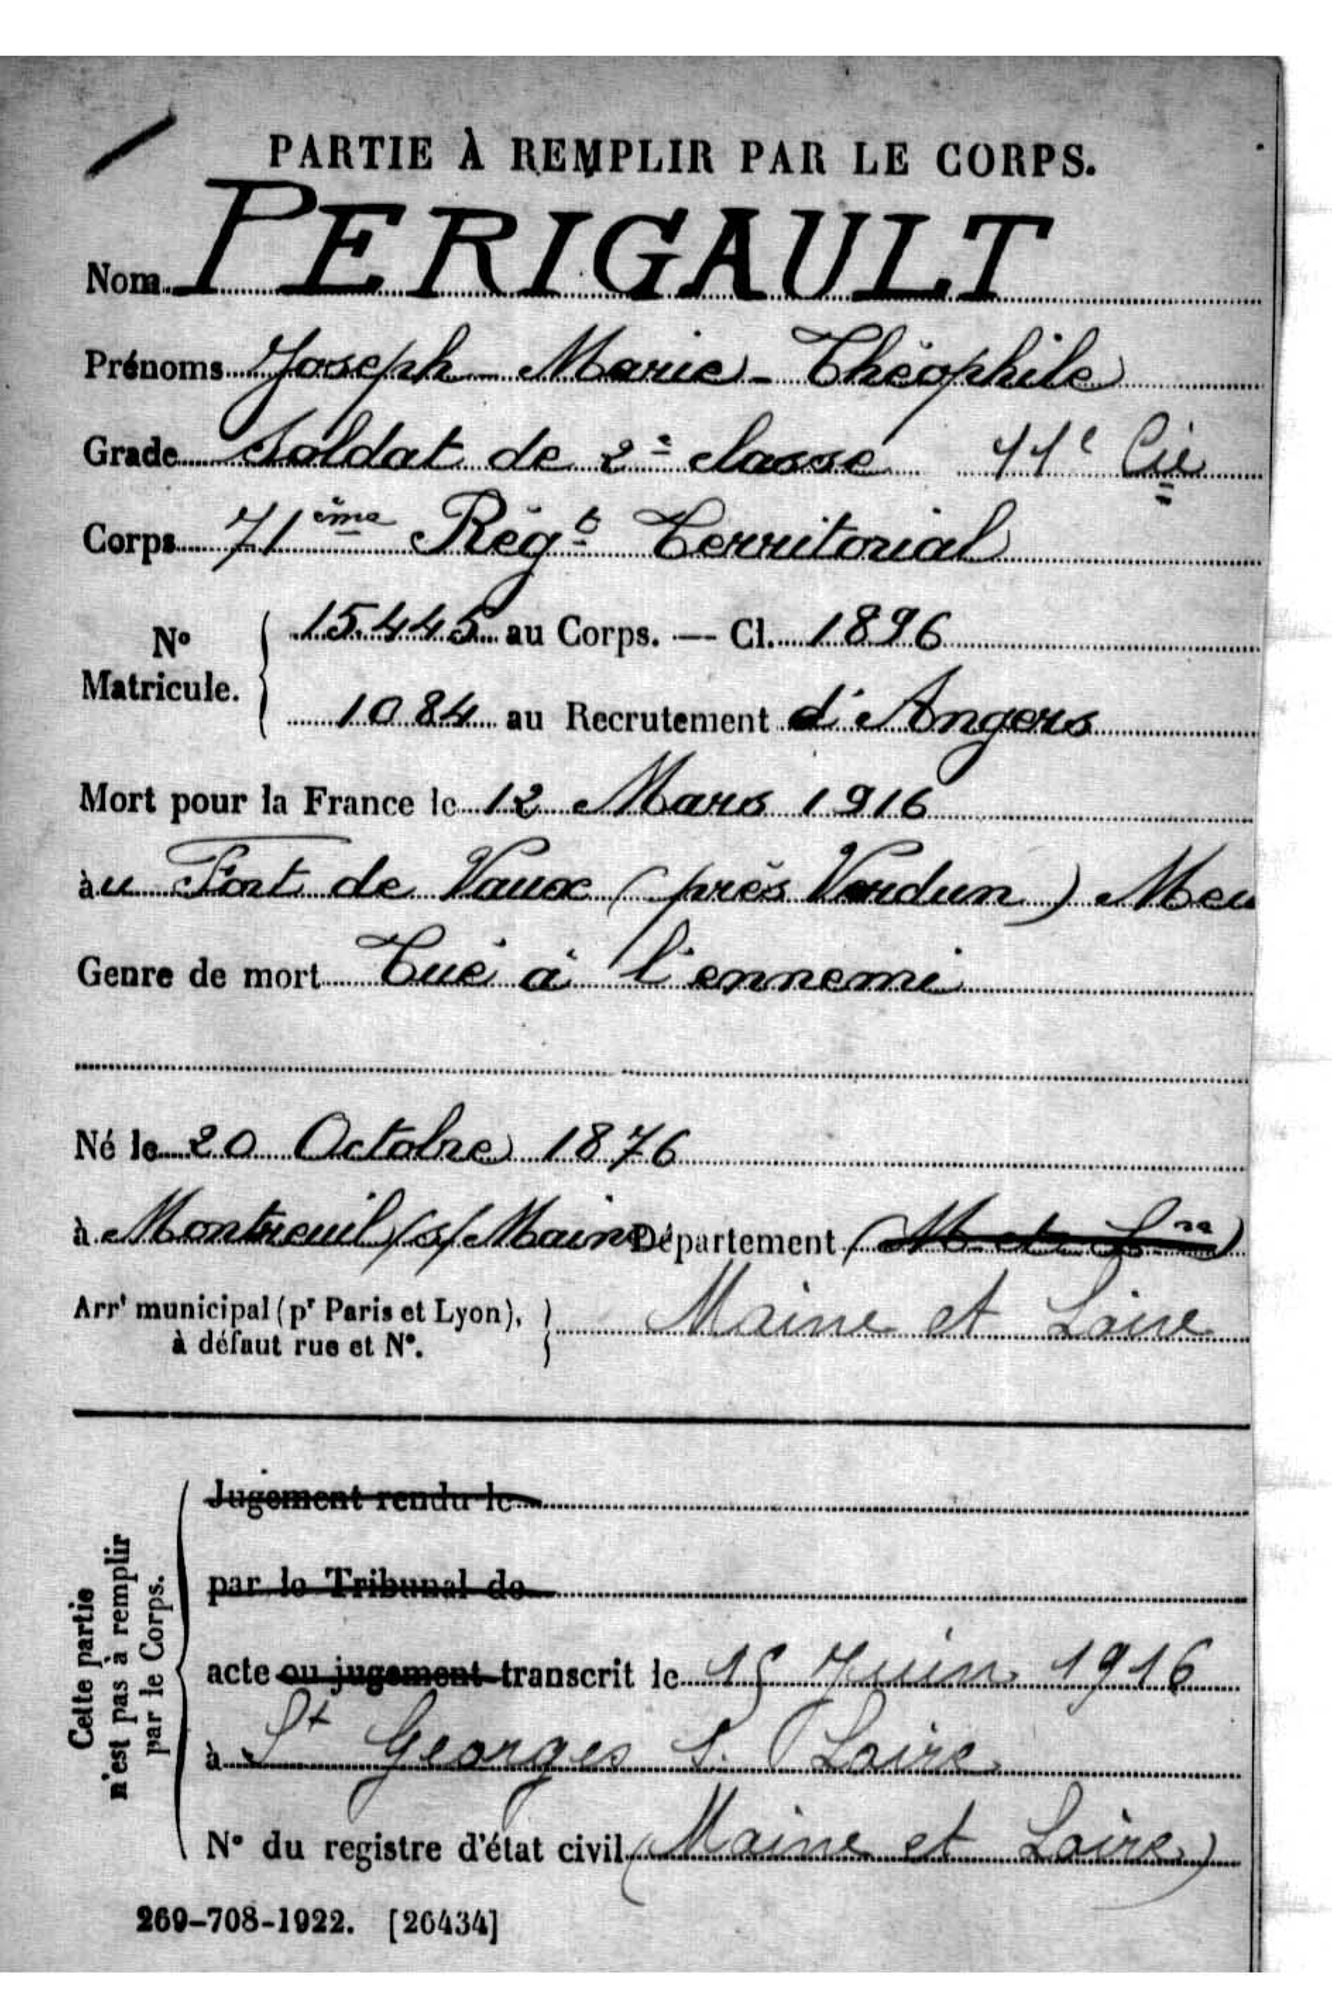 PARTIE À REMPLIR PAR LE CORPS.
Nom PERIGAULT
Prénoms Joseph - Marie - Théophile
Grade Soldat de 2e classe 11e Cie
Corps 71ème Régt Territorial
No Matricule. 15.445 au Corps. — Cl. 1896
1084 au Recrutement d'Angers
Mort pour la France le 12 Mars 1916
àu Fort de Vaux (près Verdun) Meu
Genre de mort Tué à l'ennemi
Né le 20 Octobre 1876
à Montreuil /s/ Maine Département (M. et Lre)
Arrt municipal (pr Paris et Lyon), Maine et Loire
à défaut rue et No.
Cette partie n'est pas à remplir par le Corps.
Jugement rendu le
par le Tribunal de
acte ou jugement transcrit le 15 Juin 1916
à St Georges s. Loire
No du registre d'état civil (Maine et Loire)
269-708-1922. [26434]